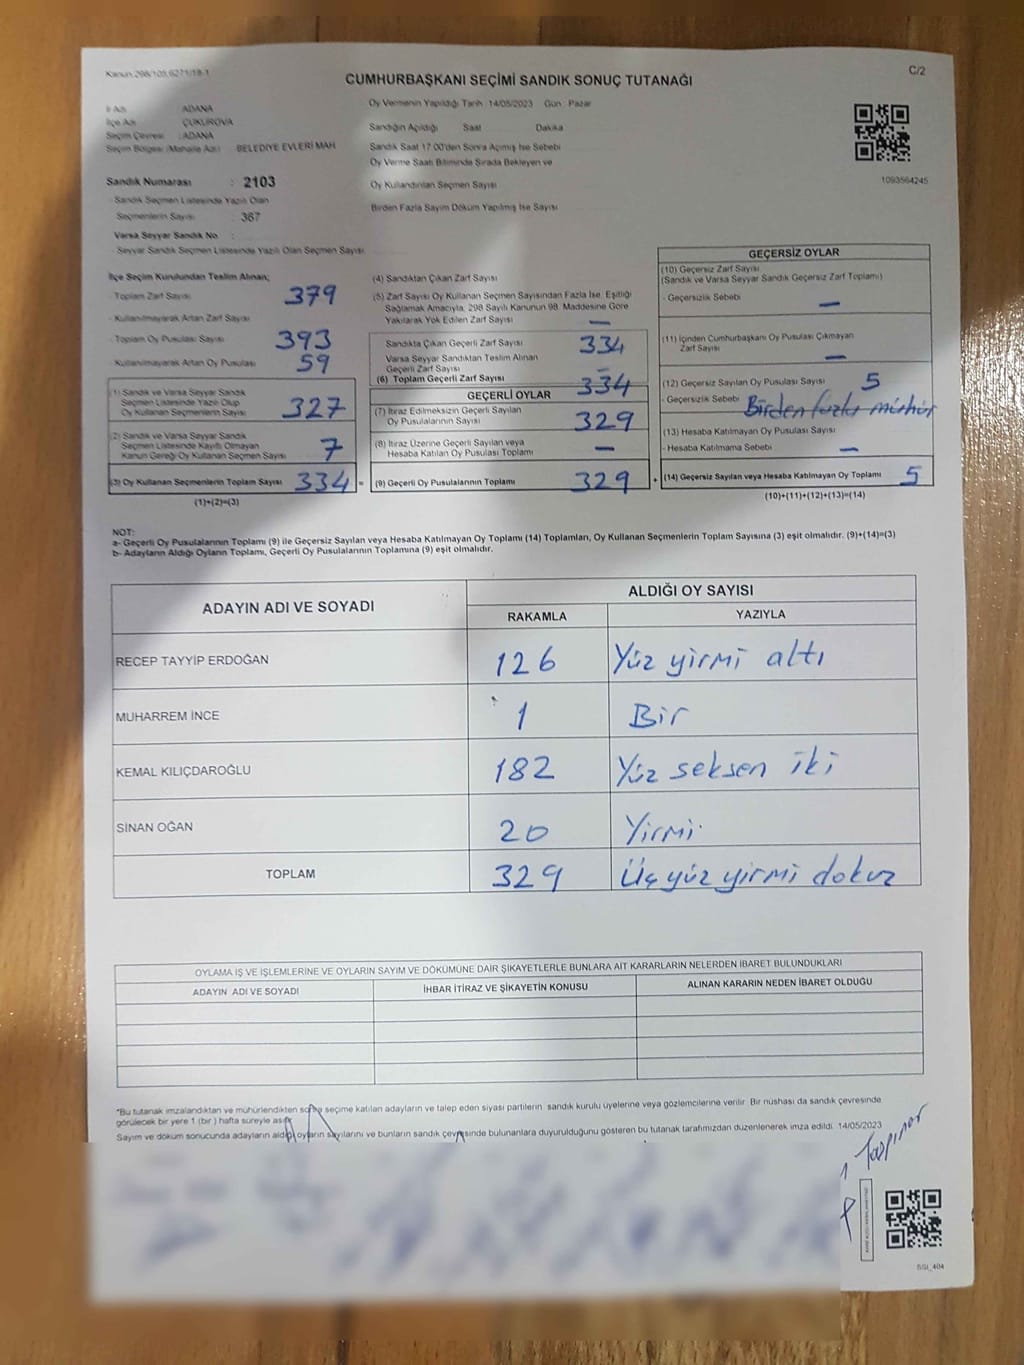 Kanun:298/105,6271/18-1
CUMHURBAŞKANI SEÇİMİ SANDIK SONUÇ TUTANAĞI
C/2
İl Adı : ADANA
İlçe Adı : ÇUKUROVA
Seçim Çevresi : ADANA
Seçim Bölgesi (Mahalle Adı) : BELEDİYE EVLERİ MAH.
Sandık Numarası : 2103
Sandık Seçmen Listesinde Yazılı Olan
Seçmenlerin Sayısı : 367
Varsa Seyyar Sandık No :
Seyyar Sandık Seçmen Listesinde Yazılı Olan Seçmen Sayısı :
Oy Vermenin Yapıldığı Tarih 14/05/2023 Gün Pazar
Sandığın Açıldığı Saat Dakika
Sandık Saat 17.00'den Sonra Açılmış İse Sebebi
Oy Verme Saati Bitiminde Sırada Bekleyen ve
Oy Kullandırılan Seçmen Sayısı
Birden Fazla Sayım Döküm Yapılmış İse Sayısı
1093564245
İlçe Seçim Kurulundan Teslim Alınan;
- Toplam Zarf Sayısı 379
- Kullanılmayarak Artan Zarf Sayısı
- Toplam Oy Pusulası Sayısı 393
- Kullanılmayarak Artan Oy Pusulası 59
(1) Sandık ve Varsa Seyyar Sandık
Seçmen Listesinde Yazılı Olup
Oy Kullanan Seçmenlerin Sayısı 327
(2) Sandık ve Varsa Seyyar Sandık
Seçmen Listesinde Kayıtlı Olmayan
Kanun Gereği Oy Kullanan Seçmen Sayısı 7
(3) Oy Kullanan Seçmenlerin Toplam Sayısı 334 =
(1)+(2)=(3)
(4) Sandıktan Çıkan Zarf Sayısı
(5) Zarf Sayısı Oy Kullanan Seçmen Sayısından Fazla İse, Eşitliği
Sağlamak Amacıyla, 298 Sayılı Kanunun 98. Maddesine Göre
Yakılarak Yok Edilen Zarf Sayısı —
Sandıkta Çıkan Geçerli Zarf Sayısı 334
Varsa Seyyar Sandıktan Teslim Alınan
Geçerli Zarf Sayısı –
(6) Toplam Geçerli Zarf Sayısı 334
GEÇERLİ OYLAR
(7) İtiraz Edilmeksizin Geçerli Sayılan
Oy Pusulalarının Sayısı 329
(8) İtiraz Üzerine Geçerli Sayılan veya
Hesaba Katılan Oy Pusulası Toplamı —
(9) Geçerli Oy Pusulalarının Toplamı 329 +
GEÇERSİZ OYLAR
(10) Geçersiz Zarf Sayısı
(Sandık ve Varsa Seyyar Sandık Geçersiz Zarf Toplamı)
- Geçersizlik Sebebi —
(11) İçinden Cumhurbaşkanı Oy Pusulası Çıkmayan
Zarf Sayısı —
(12) Geçersiz Sayılan Oy Pusulası Sayısı 5
- Geçersizlik Sebebi Birden fazla mühür
(13) Hesaba Katılmayan Oy Pusulası Sayısı
- Hesaba Katılmama Sebebi —
(14) Geçersiz Sayılan veya Hesaba Katılmayan Oy Toplamı 5
(10)+(11)+(12)+(13)=(14)
NOT:
a- Geçerli Oy Pusulalarının Toplamı (9) ile Geçersiz Sayılan veya Hesaba Katılmayan Oy Toplamı (14) Toplamları, Oy Kullanan Seçmenlerin Toplam Sayısına (3) eşit olmalıdır. (9)+(14)=(3)
b- Adayların Aldığı Oyların Toplamı, Geçerli Oy Pusulalarının Toplamına (9) eşit olmalıdır.
ADAYIN ADI VE SOYADI
ALDIĞI OY SAYISI
RAKAMLA YAZIYLA
RECEP TAYYİP ERDOĞAN 126 Yüz yirmi altı
MUHARREM İNCE 1 Bir
KEMAL KILIÇDAROĞLU 182 Yüz seksen iki
SİNAN OĞAN 20 Yirmi
TOPLAM 329 Üç yüz yirmi dokuz
OYLAMA İŞ VE İŞLEMLERİNE VE OYLARIN SAYIM VE DÖKÜMÜNE DAİR ŞİKAYETLERLE BUNLARA AİT KARARLARIN NELERDEN İBARET BULUNDUKLARI
ADAYIN ADI VE SOYADI İHBAR İTİRAZ VE ŞİKAYETİN KONUSU ALINAN KARARIN NEDEN İBARET OLDUĞU
*Bu tutanak imzalandıktan ve mühürlendikten sonra seçime katılan adayların ve talep eden siyasi partilerin sandık kurulu üyelerine veya gözlemcilerine verilir. Bir nüshası da sandık çevresinde
görülecek bir yere 1 (bir) hafta süreyle asılır.
Sayım ve döküm sonucunda adayların aldığı oyların sayılarını ve bunların sandık çevresinde bulunanlara duyurulduğunu gösteren bu tutanak tarafımızdan düzenlenerek imza edildi. 14/05/2023
Taşpınar